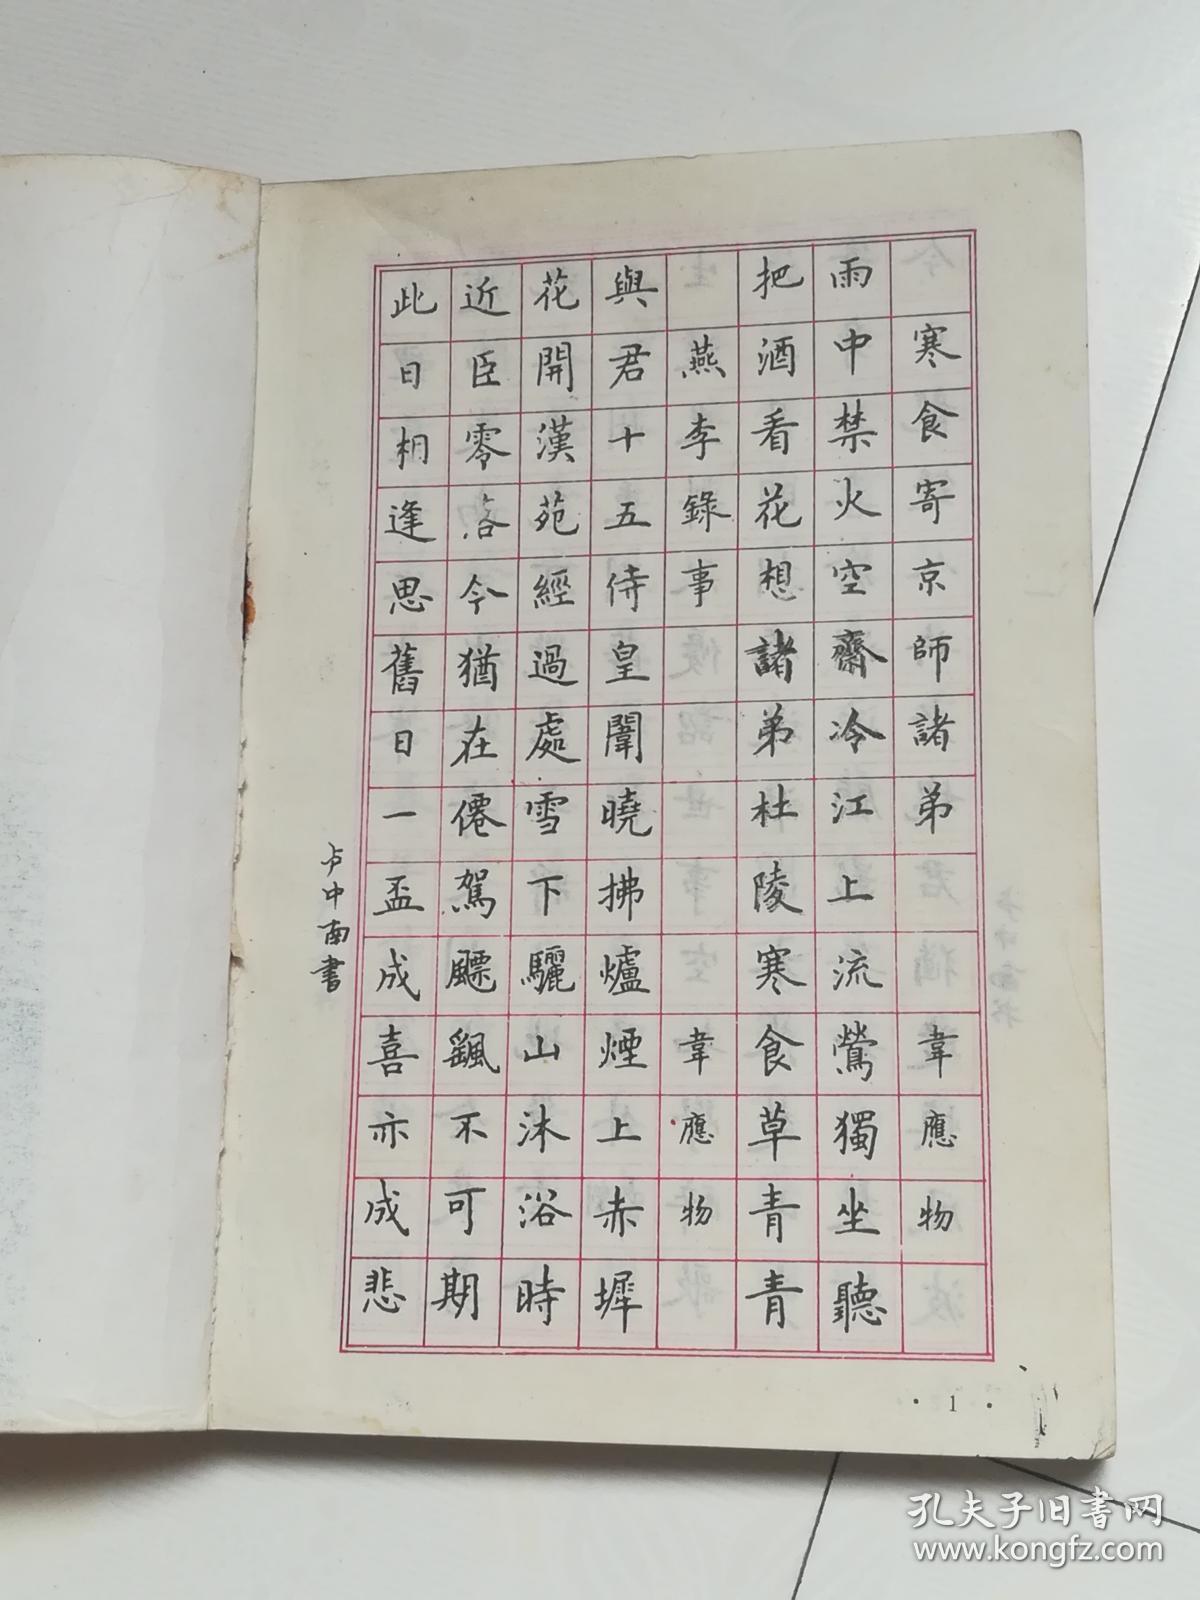 寒食寄京師諸弟 韋應物
雨中禁火空齋冷江上流鶯獨坐聽
把酒看花想諸弟杜陵寒食草青青
燕李錄事 韋應物
與君十五侍皇闈曉拂爐煙上赤墀
花開漢苑經過處雪下驪山沐浴時
近臣零落今猶在僊駕飄颻不可期
此日相逢思舊日一盃成喜亦成悲
卢中南書
·1·
孔夫子旧書网
www.kongfz.com